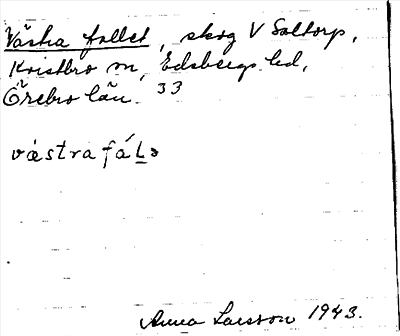 Västra fallet, skog V Saltorp,
Kvistbro sn, Edsbergs hd,
Örebro län. 33
västra fáḺə
Anna Larsson 1943.